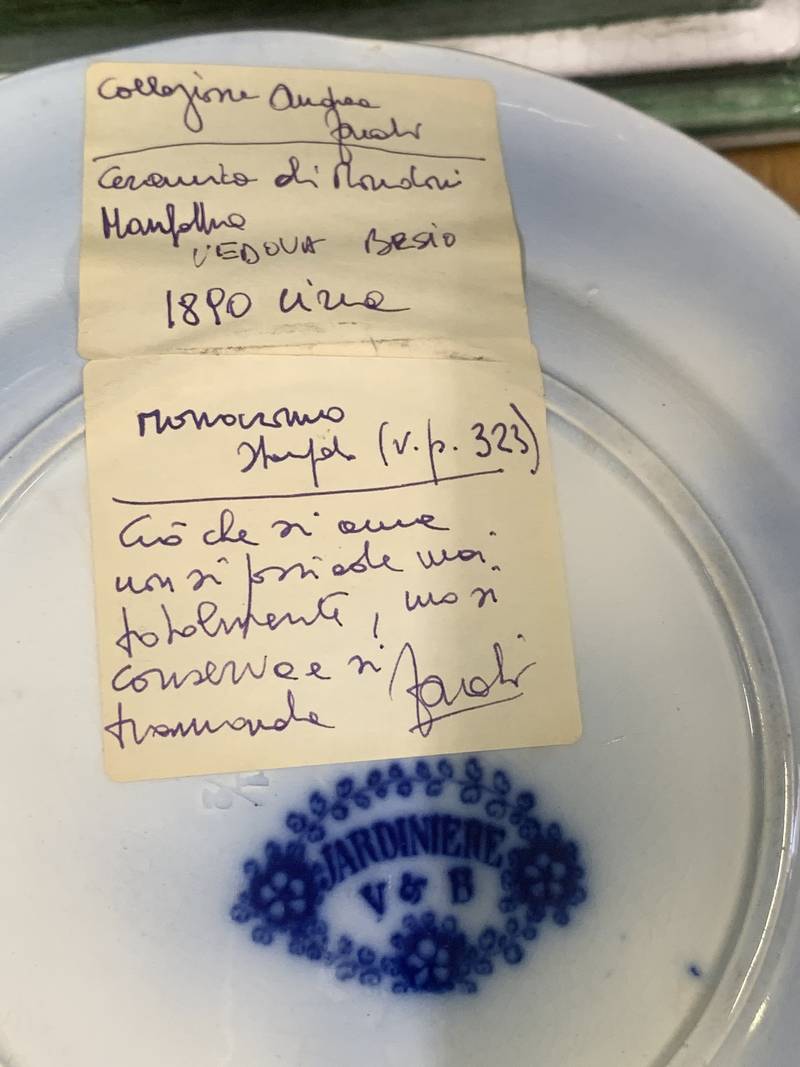 Collezione Andrea
Ceramica di Mondovì
Manifattura
VEDOVA BESIO
1890 circa
monocromo
stampato (v.p. 323)
Ciò che si ama
non si possiede mai
totalmente, ma si
conserva e si
tramanda
JARDINIERE
V & B